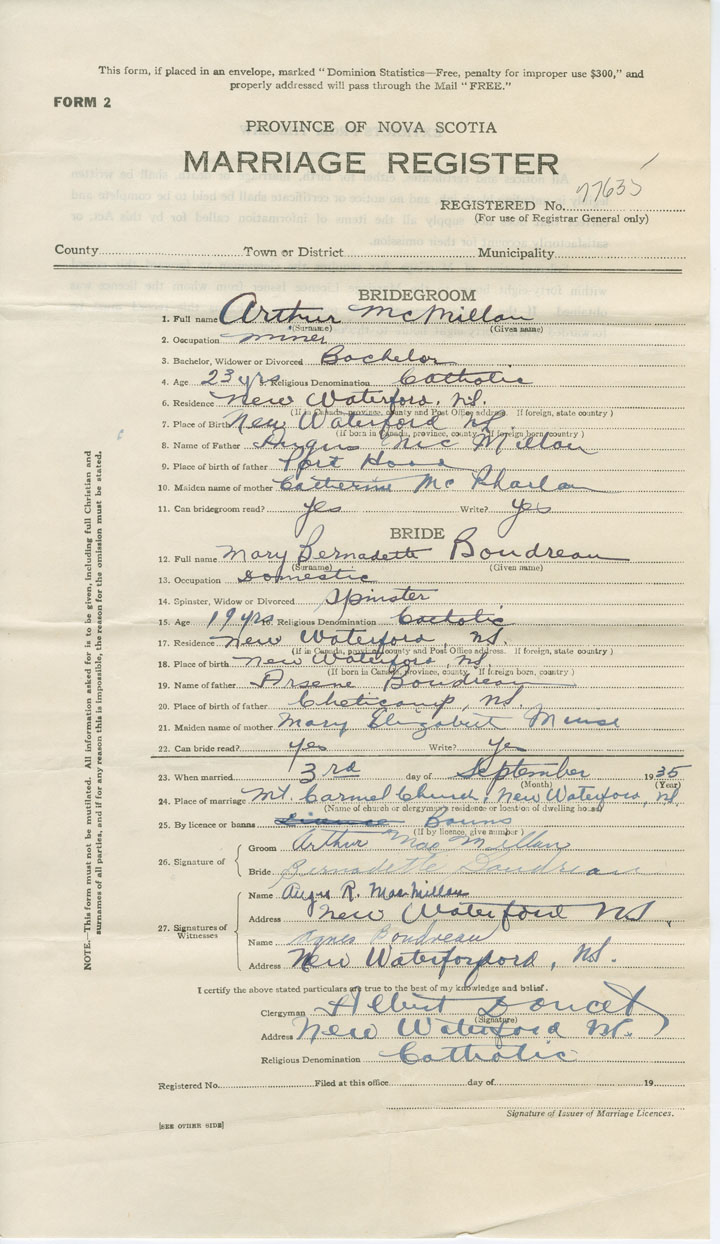 This form, if placed in an envelope, marked "Dominion Statistics—Free, penalty for improper use $300," and
properly addressed will pass through the Mail "FREE."
FORM 2
PROVINCE OF NOVA SCOTIA
MARRIAGE REGISTER
REGISTERED No. 77635
(For use of Registrar General only)
County Town or District Municipality
BRIDEGROOM
1. Full name Arthur McMillan
(Surname) (Given name)
2. Occupation miner
3. Bachelor, Widower or Divorced Bachelor
4. Age 23 yrs Religious Denomination Catholic
6. Residence New Waterford, N.S.
(If in Canada, province, county and Post Office address. If foreign, state country)
7. Place of Birth New Waterford N.S.
(If born in Canada, province, county. If foreign born, country)
8. Name of Father Angus McMillan
9. Place of birth of father Port Hood
10. Maiden name of mother Catherine Mc
11. Can bridegroom read? yes Write? yes
BRIDE
12. Full name Mary Bernadette Boudreau
(Surname) (Given name)
13. Occupation Domestic
14. Spinster, Widow or Divorced Spinster
15. Age 19 yrs. Religious Denomination Catholic
17. Residence New Waterford, N.S.
(If in Canada, province, county and Post Office address. If foreign, state country)
18. Place of birth New Waterford, N.S.
(If born in Canada, province, county. If foreign born, country)
19. Name of father Arsene Boudreau
20. Place of birth of father Cheticamp, N.S.
21. Maiden name of mother Mary Elizabeth
22. Can bride read? yes Write? yes
23. When married 3rd day of September 1935
(Month) (Year)
24. Place of marriage Mt. Carmel Church, New Waterford, N.S.
(Name of church or clergyman's residence or location of dwelling house)
25. By licence or banns Licence Banns
(If by licence, give number)
26. Signature of
Groom Arthur MacMillan
Bride Bernadette Boudreau
27. Signatures of Witnesses
Name Angus R. MacMillan
Address New Waterford N.S.
Name Agnes Boudreau
Address New Waterforford, N.S.
I certify the above stated particulars are true to the best of my knowledge and belief.
Clergyman Albert Doucet
(Signature)
Address New Waterford N.S.
Religious Denomination Catholic
Registered No. Filed at this office day of 19
Signature of Issuer of Marriage Licences.
[SEE OTHER SIDE]
NOTE.—This form must not be mutilated. All information asked for is to be given, including full Christian and
surnames of all parties, and if for any reason this is impossible, the reason for the omission must be stated.